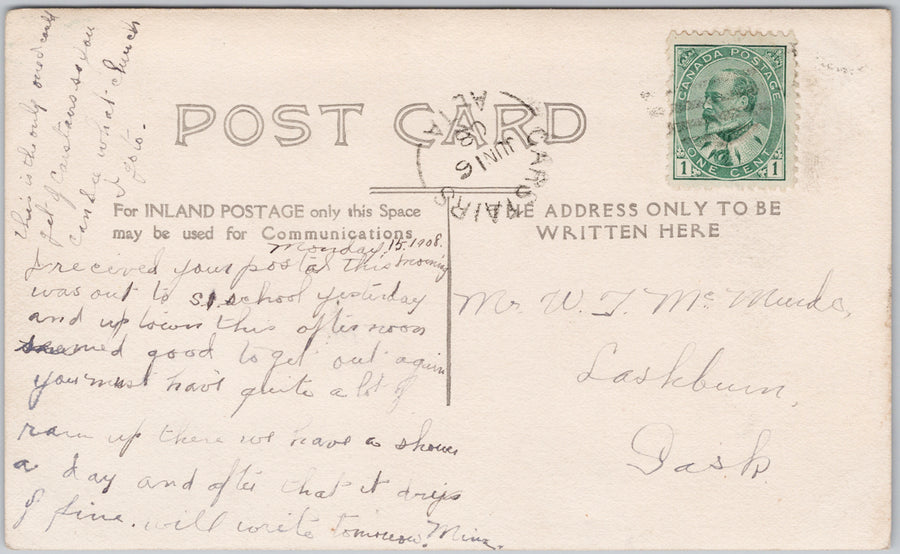 This is the only one I could
get of Carstairs so you
can see what church
I go to.
POST CARD
CANADA POSTAGE
ONE CENT
1 1
CARSTAIRS
JUN 16
08
ALTA
For INLAND POSTAGE only this Space
may be used for Communications
THE ADDRESS ONLY TO BE
WRITTEN HERE
Monday 15. 1908.
I received your postal this morning
was out to S. school yesterday
and up town this afternoon
seemed good to get out again
you must have quite a lot of
rain up there we have a shower
a day and after that it drys
up fine. will write tomorrow. Mina.
Mr W. T. McMurdo,
Lashburn,
Sask